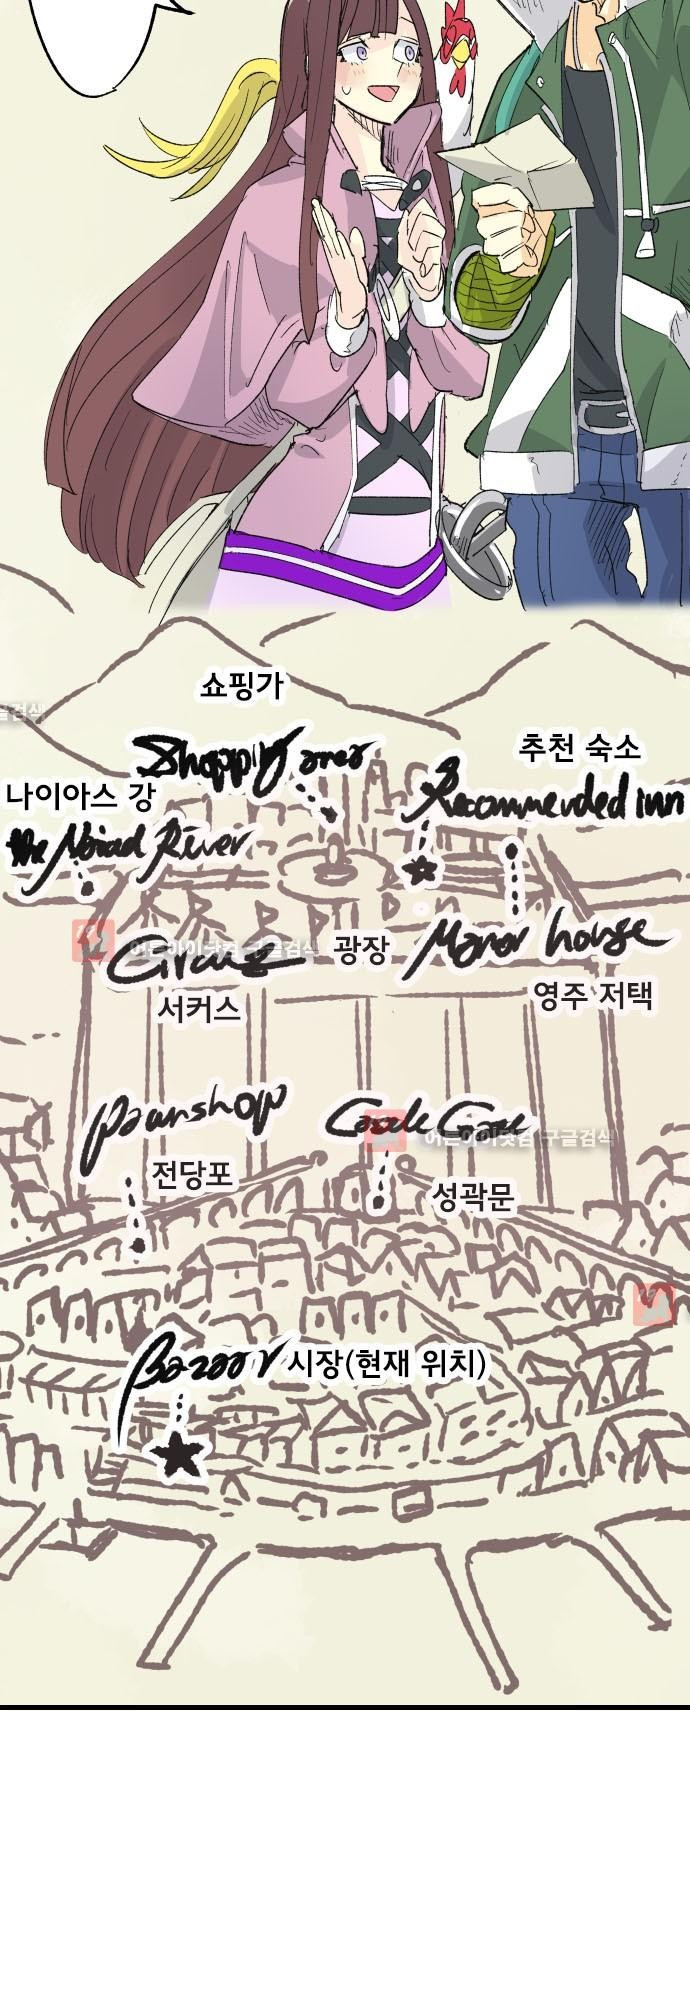 쇼핑가
Shopping area
추천 숙소
Recommended inn
나이아스 강
the Naiad River
Circus
광장
Manor house
서커스
영주 저택
어른아이닷컴 구글검색
pawnshop
Castle Gate
어른아이닷컴 구글검색
전당포
성곽문
Bazaar 시장(현재 위치)